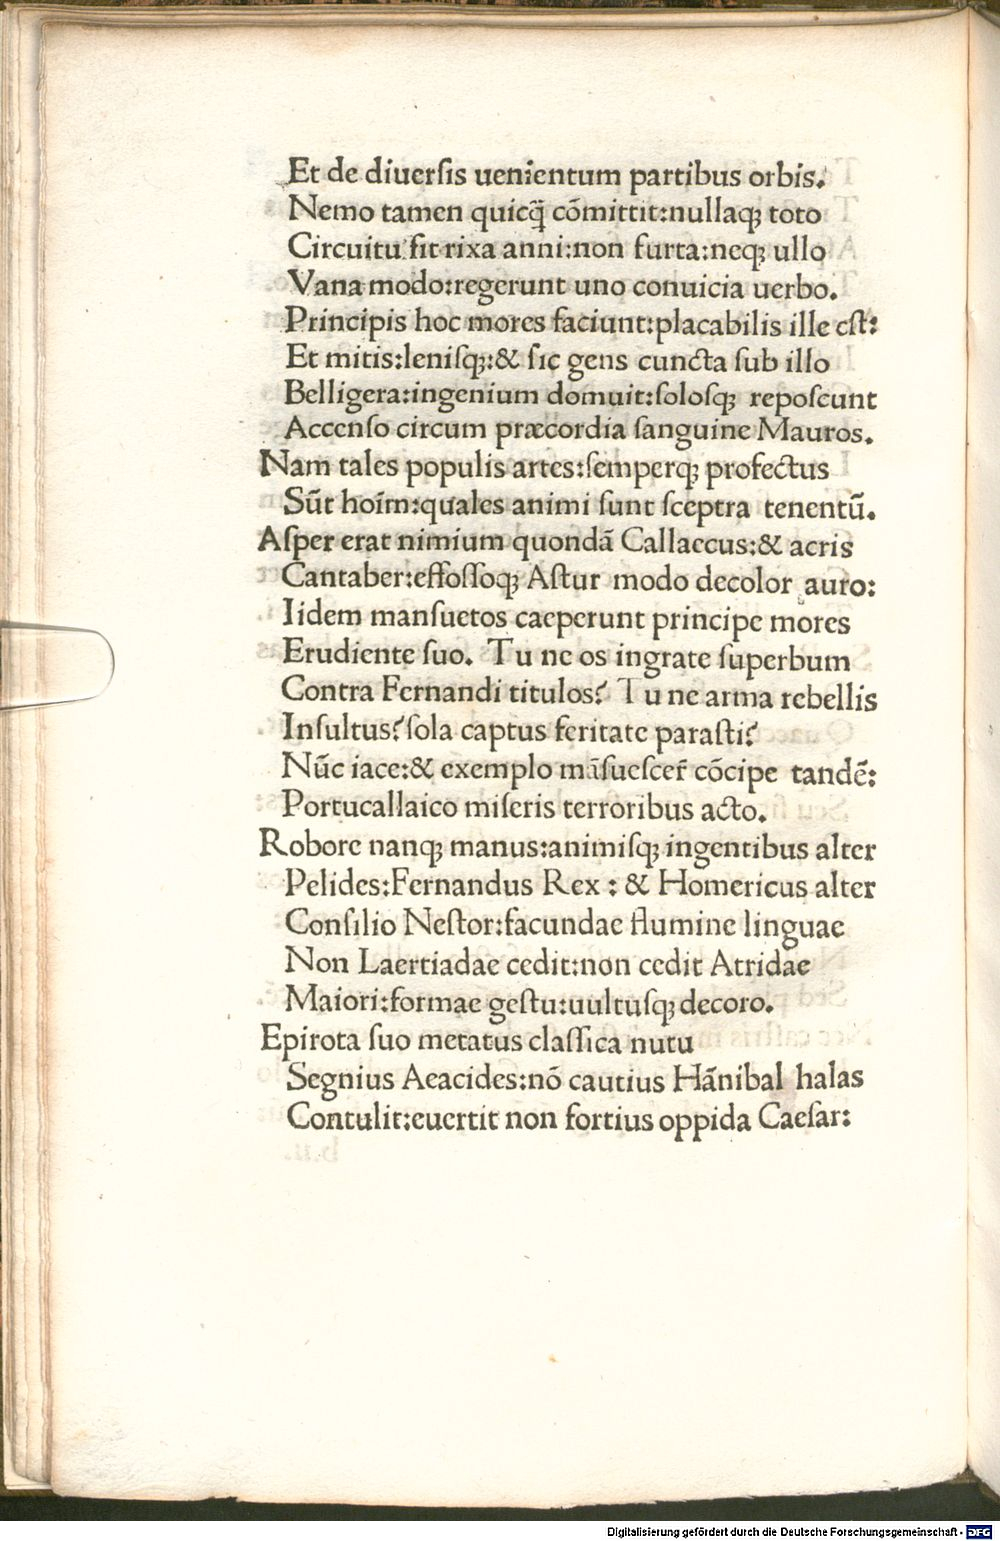 Et de diuerſis uenientum partibus orbis.
Nemo tamen quicq̄ cōmittit:nullaqꝫ toto
Circuitu ſit rixa anni:non furta:neqꝫ ullo
Vana modo:regerunt uno conuicia uerbo.
Principis hoc mores faciunt:placabilis ille eſt:
Et mitis:leniſqꝫ:& ſic gens cuncta ſub illo
Belligera:ingenium domuit:ſoloſqꝫ repoſcunt
Accenſo circum præcordia ſanguine Mauros.
Nam tales populis artes:ſemperqꝫ profectus
Sūt hoīm:quales animi ſunt ſceptra tenentū.
Aſper erat nimium quondā Callaecus:& acris
Cantaber:effoſſoqꝫ Aſtur modo decolor auro:
Iidem manſuetos caeperunt principe mores
Erudiente ſuo. Tu ne os ingrate ſuperbum
Contra Fernandi titulos? Tu ne arma rebellis
Inſultus? ſola captus feritate paraſti?
Nūc iace:& exemplo māſueſcer̄ cōcipe tandē:
Portucallaico miſeris terroribus acto.
Robore nanqꝫ manus:animiſqꝫ ingentibus alter
Pelides:Fernandus Rex : & Homericus alter
Conſilio Neſtor:facundae flumine linguae
Non Laertiadae cedit:non cedit Atridae
Maiori:formae geſtu:uultuſqꝫ decoro.
Epirota ſuo metatus claſſica nutu
Segnius Aeacides:nō cautius Hānibal halas
Contulit:euertit non fortius oppida Caeſar:
Digitalisierung gefördert durch die Deutsche Forschungsgemeinschaft - DFG